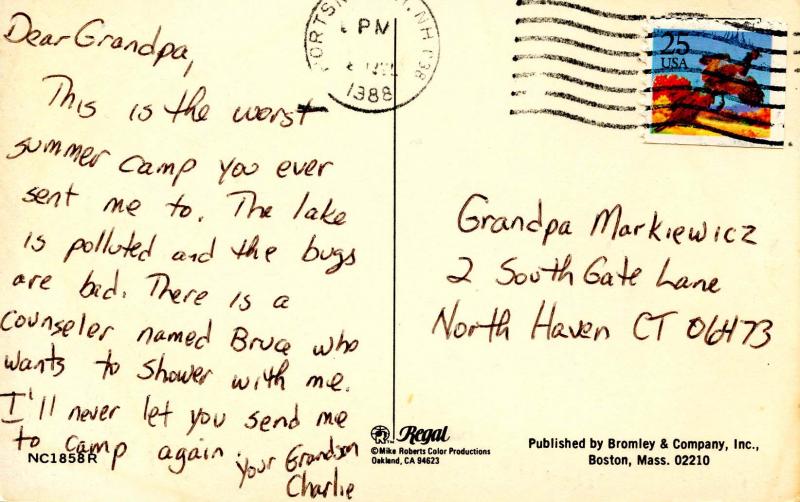 Dear Grandpa,
This is the worst
summer camp you ever
sent me to. The lake
is polluted and the bugs
are bad. There is a
counseler named Bruce who
wants to shower with me.
I'll never let you send me
to camp again.
Your Grandson
Charlie
NC1858R
PM
1988
25
USA
Grandpa Markiewicz
2 South Gate Lane
North Haven CT 06473
Regal
©Mike Roberts Color Productions
Oakland, CA 94623
Published by Bromley & Company, Inc.,
Boston, Mass. 02210